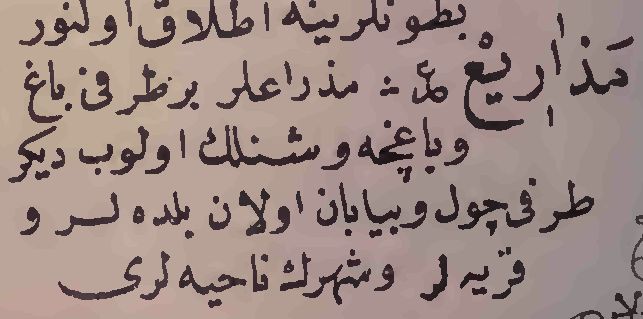 بطونلرينه اطلاق اولنور
مذاريع مذراعلر برطرفى باغ
وباغچه و شنلك اولوب ديكر
طرفى چول و بيابان اولان بلده لر و
قريه لر و شهرك ناحيه لرى